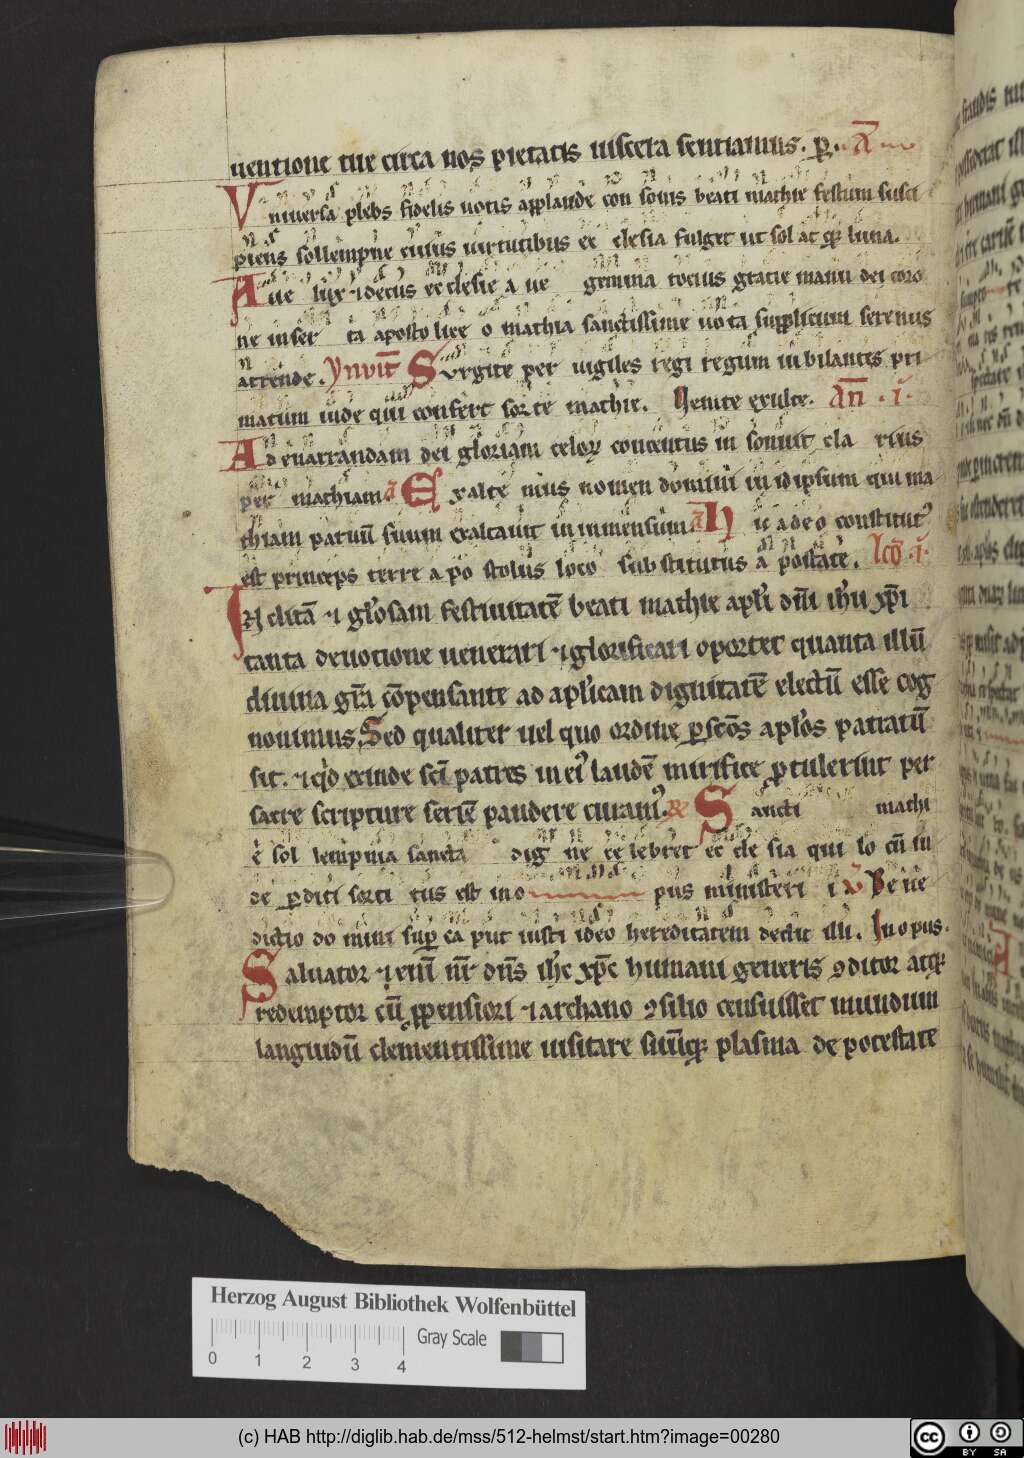 uentione tue circa nos pietatis uiscera sentiamus. p̲. A̅
Vniuersa plebs fidelis uotis applaude con sonis beati mathie festum susci
piens sollempne cuius uirtutibus ec clesia fulget ut sol at q̲ luna.
Aue lux ⁊ decus ec clesie a ue gemma tocius gratie manu dei coro
ne inser ta aposto lice o mathia sanctissime uo ta supplicum serenus
attende. Ynuit̅ Surgite per uigiles regi regum iubilantes pri
matum iude qui confert sorte mathie. Uenite exulte. An̅ · i ·
Ad enarrandam dei gloriam celoꝝ concentus in sonuit cla rius
per mathiam a̅ Exalte mus nomen domini in idipsum qui ma
thiam paruu̅ suum exaltauit in inmensum a̅ Hic a deo constitutꝰ
est princeps terre a po stolus loco sub stitutus a postate. lc̅o · i ·
Inclita̅ ⁊ gl'osam festiuitate̅ beati mathie apl'i dn̅i ih'u xp̅i
tanta deuotione uenerari ⁊ glorificari oportet quanta illu̅
diuina gr̅a co̅pensante ad apl'icam dignitate̅ electu̅ esse cog
nouimus. Sed qualiter uel quo ordine p̲ sc̅os apl'os patratu̅
sit. ⁊ qd' exinde sc̅i patres in eiꝰ laude̅ mirifice p̲tulerint per
sacre scripture serie̅ pandere curamꝰ. R̸ Sancti mathi
e sol lempnia sancta dig ne ce lebret ec cle sia qui lo cu̅ in
de p̲diti sorti tus est in o pus ministeri i v̅ Bene
dictio do mini sup̲ ca put iusti ideo hereditatem dedit illi. In opus.
Saluator ⁊ eni̅ nr̅ dn̅s ih'c xp̅c humani generis ꝯditor atq̲
redemptor cu̅ p̲pensiori ⁊ archano ꝯsilio censuisset mundum
languidu̅ clementissime uisitare suu̅q̲ plasma de potestate
Herzog August Bibliothek Wolfenbüttel
Gray Scale
0 1 2 3 4
(c) HAB http://diglib.hab.de/mss/512-helmst/start.htm?image=00280
cc BY SA